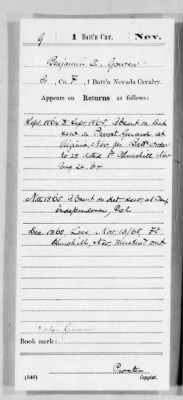 G | 1 Batt'n Cav. | Nev.
Benjamin
Co. F, 1 Batt'n Nevada Cavalry.
Appears on Returns as follows:
Sept. 1864 Sept. 1865, Absent on Det
serv. as Provost Guard at
Virginia, Nev. per Batt'n order
No 28 dated Ft Churchill Nev
Aug 26, 64
Nov. 1865 Absent on det. serv. at Camp
Independence, Cal
Dec 1865, Loss Nov. 18/65, Ft.
Churchill, Nev, Mustered out
Book mark:
(546)
Copyist.